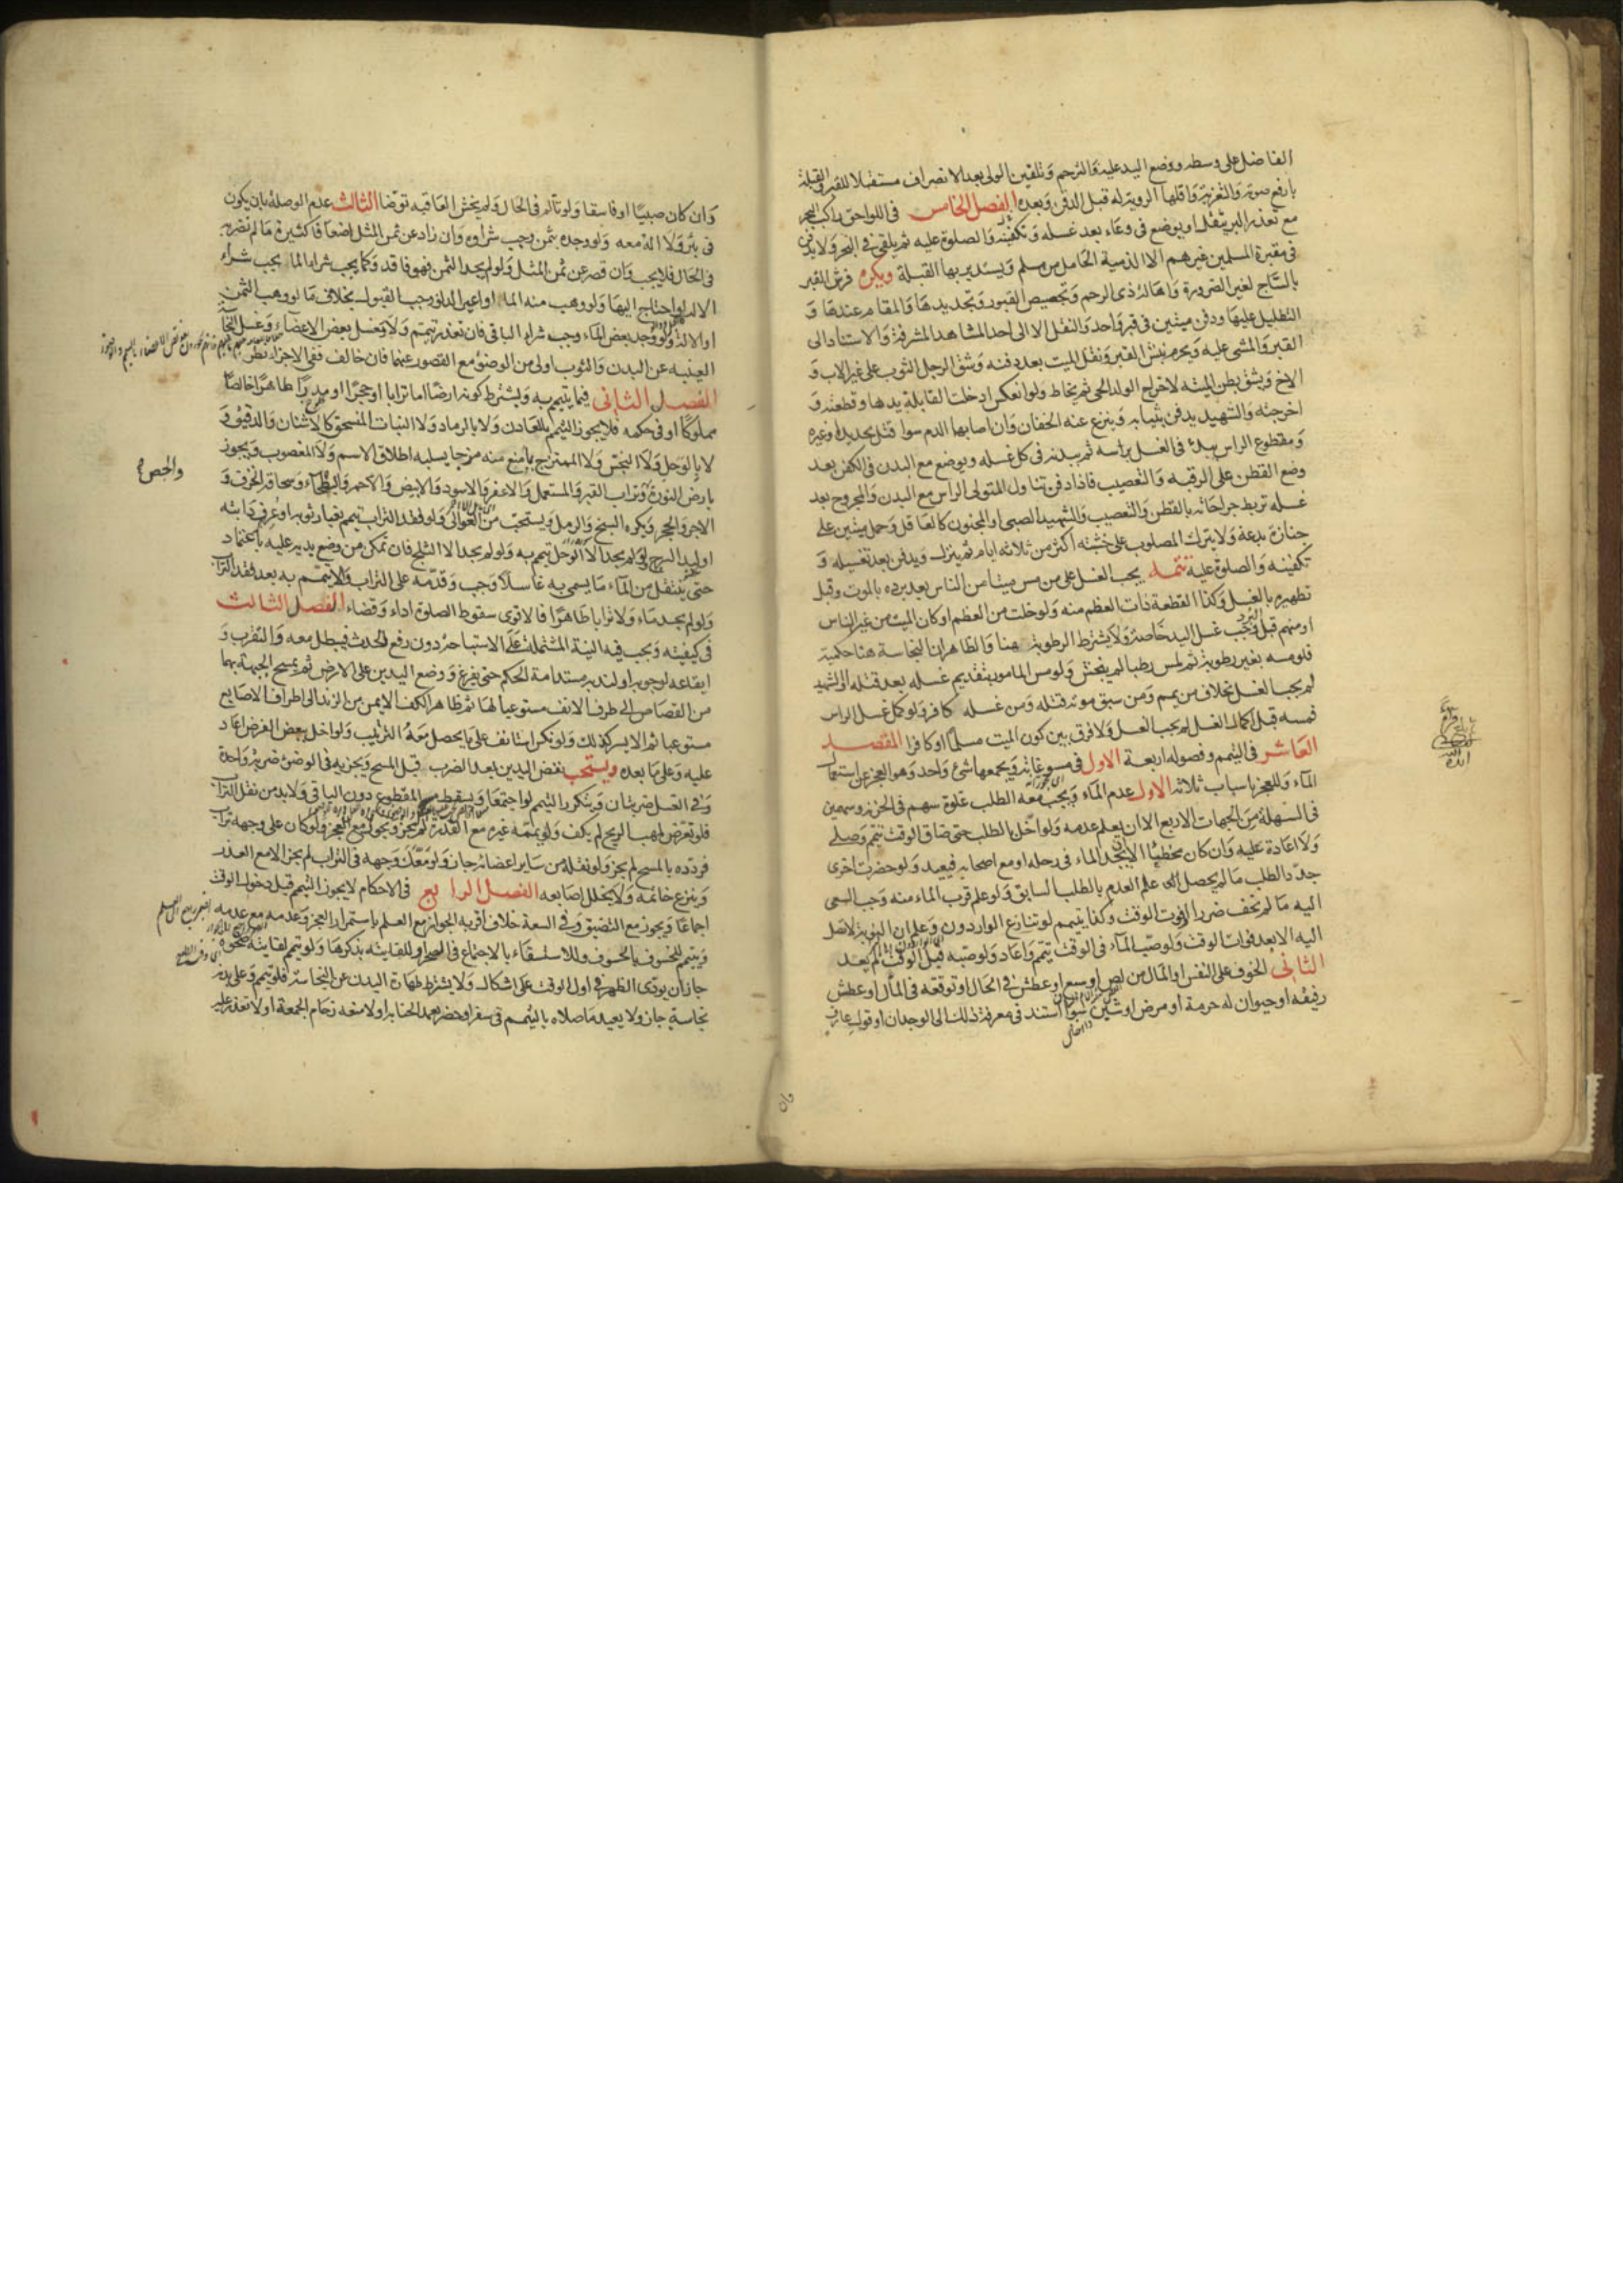 الفاضل على وسطه ووضع اليد عليه والترحم وتلقين الولي بعد الانصراف مستقبلا للقبر والقبلة
بارفع صوته والتعزية واقلها الرؤية له قبل الدفن وبعده الفصل الخامس في اللواحق راكب البحر
مع تعذر البر يثقل او يوضع في وعاء بعد غسله وتكفينه والصلوة عليه ثم يلقى في البحر ولا يدفن
في مقبرة المسلمين غيرهم الا الذمية الحامل من مسلم ويستدبر بها القبلة ويكره فرش القبر
بالساج لغير الضرورة واهالة ذي الرحم وتجصيص القبور وتجديدها والمقام عندها و
التظليل عليها ودفن ميتين في قبر واحد والنقل الا الى احد المشاهد المشرفة والاستناد الى
القبر والمشي عليه ويحرم نبش القبر ونقل الميت بعد دفنه وشق الرجل الثوب على غير الاب و
الاخ ويشق بطن الميتة لاخراج الولد الحي ثم يخاط ولو انعكس ادخلت القابلة يدها وقطعته و
اخرجته والشهيد يدفن بثيابه وينزع عنه الخفان وان اصابهما الدم سوا قتل بحديد او غيره
ومقطوع الراس يبدء في الغسل براسه ثم ببدنه في كل غسله ويوضع مع البدن في الكفن بعد
وضع القطن على الرقبه والتعصيب فاذا دفن تناول المتولي الراس مع البدن والمجروح بعد
غسله تربط جراحاته بالقطن والتعصيب والشهيد الصبي او المجنون كالعاقل وحمل ميتين على
جنازة بدعة ولا يترك المصلوب على خشبته اكثر من ثلاثه ايام ثم ينزل ويدفن بعد تغسيله و
تكفينه والصلوة عليه تتمه يجب الغسل على من مس ميتا من الناس بعد برده بالموت وقبل
تطهيره بالغسل وكذا القطعة ذات العظم منه ولو خلت من العظم او كان الميت من غير الناس
او منهم قبل البرد وجب غسل اليد خاصة ولا يشترط الرطوبة هنا والظاهر ان النجاسة هنا حكمية
فلو مسه بغير رطوبة ثم لمس رطبا لم ينجس ولو مس المامور بتقديم غسله بعد قتله او الشهيد
لم يجب الغسل بخلاف من يمم ومن سبق موته قتله ومن غسله كافر ولو كمل غسل الراس
فمسه قبل اكمال الغسل لم يجب الغسل ولا فرق بين كون الميت مسلما او كافرا المقصد
العاشر في التيمم وفصوله اربعة الاول في مسوغاته ويجمعها شئ واحد وهو العجز عن استعمال
الماء وللعجز اسباب ثلاثة الاول عدم الماء ويجب معه الطلب غلوة سهم في الحزنة وسهمين
في السهلة من الجهات الاربع الا ان يعلم عدمه ولو اخل بالطلب حتى ضاق الوقت تيمم وصلى
ولا اعادة عليه وان كان مخطئا الا ان يجد الماء في رحله او مع اصحابه فيعيد ولو حضرت اخرى
جدد الطلب ما لم يحصل علم العدم بالطلب السابق ولو علم قرب الماء منه وجب السعي
اليه ما لم يخف ضررا او فوت الوقت وكذا يتيمم لو تنازع الواردون وعلم ان النوبة لا تصل
اليه الا بعد فوات الوقت ولو صب الماء في الوقت تيمم واعاد ولو صبه قبل الوقت لم يعد
الثاني الخوف على النفس او المال من لص او سبع او عطش في الحال او توقعه في المآل او عطش
رفيقه او حيوان له حرمة او مرض او شين سوا استند في معرفة ذلك الى الوجدان او قول عارف
وان كان صبيا او فاسقا ولو تألم في الحال ولم يخش العاقبه توضا الثالث عدم الوصلة بان يكون
في بئر ولا الة معه ولو وجده بثمن وجب شراؤه وان زاد عن ثمن المثل اضعافا كثيرة ما لم يضر به
في الحال فلا يجب وان قصر عن ثمن المثل ولو لم يجد الثمن فهو فاقد وكما يجب شراء الماء يجب شراء
الالة لو احتاج اليها ولو وهب منه الماء او اعير الدلو وجب القبول بخلاف ما لو وهب الثمن
او الالة ولو وجد بعض الماء وجب شراء الباقي فان تعذر تيمم ولا يغسل بعض الاعضاء وغسل النجاسة
العينيه عن البدن والثوب اولى من الوضوء مع القصور عنهما فان خالف ففي الاجزاء نظر
الفصل الثاني فيما يتيمم به ويشترط كونه ارضا اما ترابا او حجرا او مدرا طاهرا خالصا
مملوكا او في حكمه فلا يجوز التيمم بالمعادن ولا بالرماد ولا النبات المنسحق كالاشنان والدقيق و
لا بالوحل ولا النجس ولا الممتزج بما منع منه مزجا يسلبه اطلاق الاسم ولا المغصوب ويجوز
والجص
بارض النورة وتراب القبر والمستعمل والاعفر والاسود والابيض والاحمر والبطحاء وسحاقة الخزف و
الاجر والحجر ويكره السبخ والرمل ويستحب من العوالي ولو فقد التراب تيمم بغبار ثوبه او عرف دابته
او لبد السرج ولو لم يجد الا الوحل تيمم به ولو لم يجد الا الثلج فان تمكن من وضع يديه عليه باعتماد
حتى ينتقل من الماء ما يسمى به غاسلا وجب وقدمه على التراب والا تيمم به بعد فقد التراب
ولو لم يجد ماء ولا ترابا طاهرا فالاقوى سقوط الصلوة اداء وقضاء الفصل الثالث
في كيفيته ويجب فيه النية المشتملة على الاستباحة دون رفع الحدث فيبطل معه والتقرب و
ايقاعه لوجوبه او لندبه مستدامة الحكم حتى يفرغ ووضع اليدين على الارض ثم يمسح الجبهة بهما
من القصاص الى طرف الانف مستوعبا لها ثم ظاهر الكف الايمن من الزند الى اطراف الاصابع
مستوعبا ثم الايسر كذلك ولو نكس استانف على ما يحصل معه الترتيب ولو اخل ببعض الفرض اعاد
عليه وعلى ما بعده ويستحب نفض اليدين بعد الضرب قبل المسح ويجزيه في الوضوء ضربة واحدة
وفي الغسل ضربتان ويتكرر التيمم لو اجتمعا ويسقط مسح المقطوع دون الباقي ولا بد من نقل التراب
فلو تعرض لمهب الريح لم يكف ولو يممه غيره مع القدرة لم يجز ويجوز مع العجز ولو كان على وجهه تراب
فردده بالمسح لم يجز ولو نقله من ساير اعضائه جاز ولو معك وجهه في التراب لم يجز الا مع العذر
وينزع خاتمه ولا يخلل اصابعه الفصل الرابع في الاحكام لا يجوز التيمم قبل دخول الوقت
اجماعا ويجوز مع التضيق وفي السعة خلاف اقربه الجواز مع العلم باستمرار العجز وعدمه مع عدمه
ويتيمم للخسوف بالخسوف وللاستسقاء بالاجتماع في الصحراء وللفايتة بذكرها ولو تيمم لفايتة ضحوة
جاز ان يؤدي الظهر في اول الوقت على اشكال ولا يشترط طهارة البدن عن النجاسة فلو تيمم وعلى بدنه
نجاسة جاز ولا يعيد ما صلاه بالتيمم في سفر او حضر تعمد الجنابة او لا منعه زحام الجمعة او لا تعذر عليه